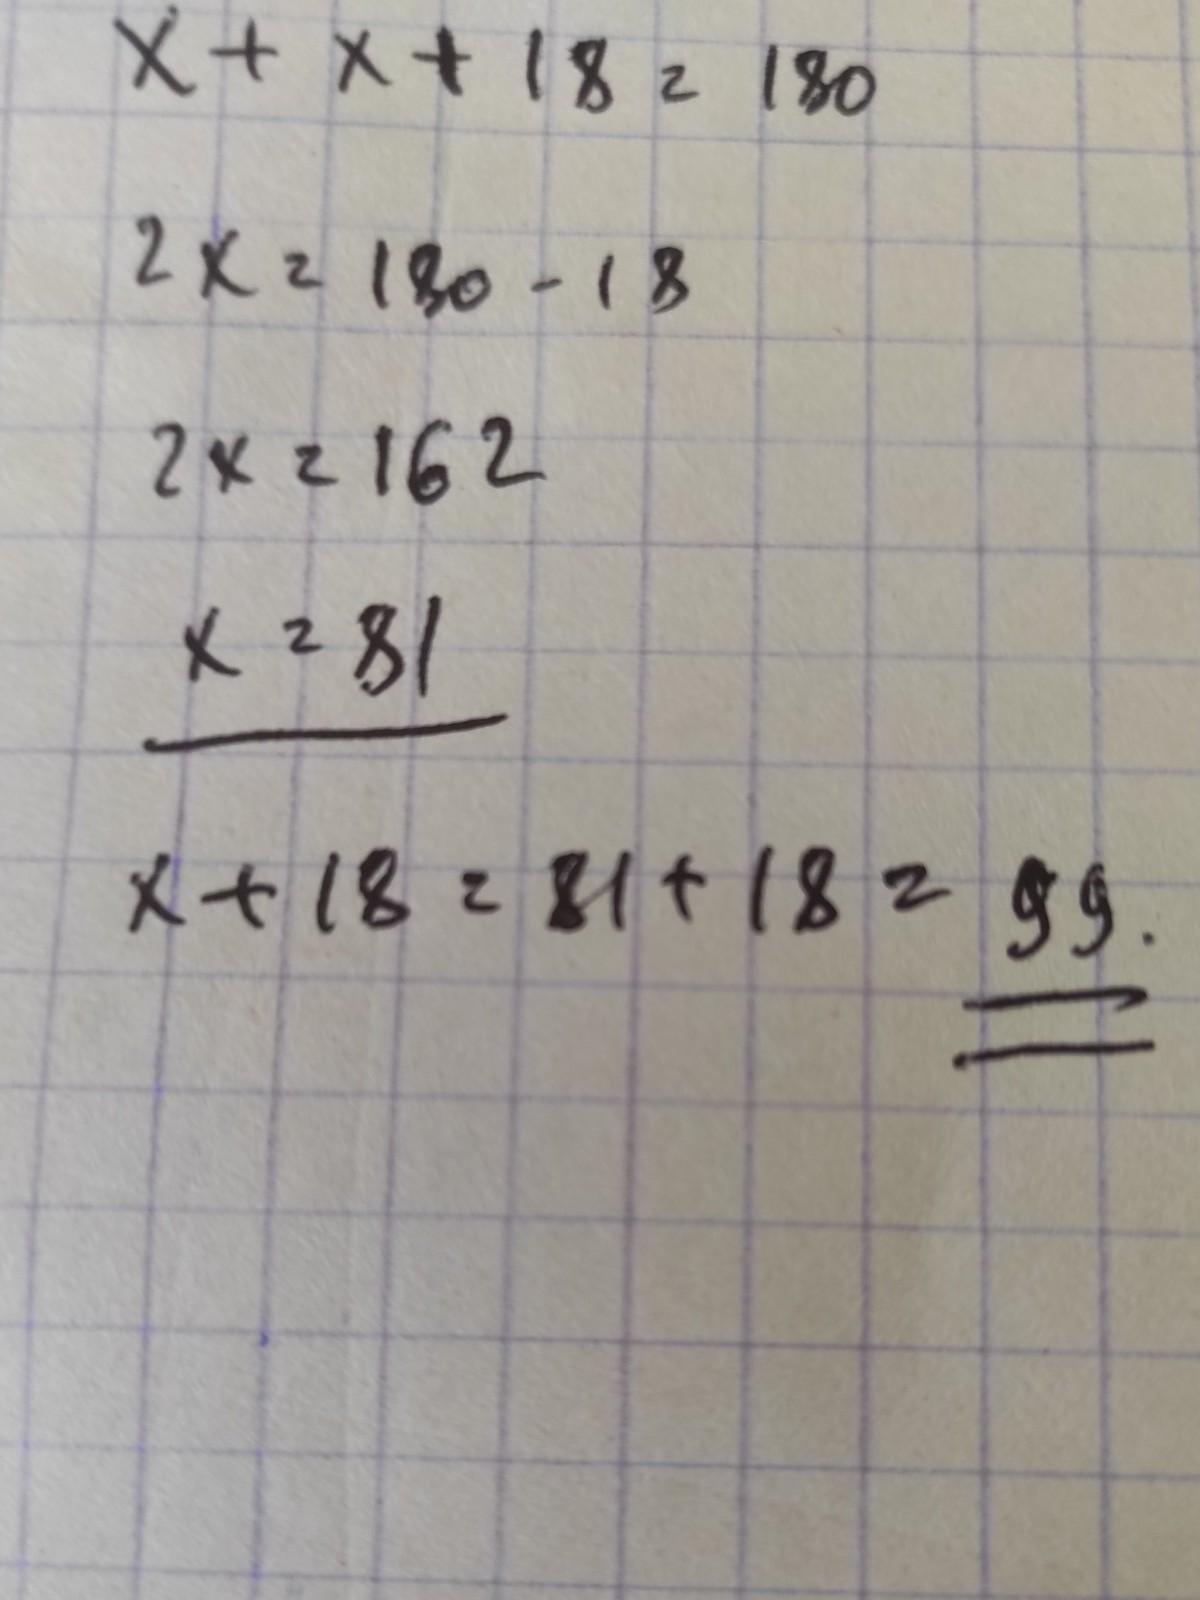 x + x + 18 = 180
2x = 180 - 18
2x = 162
x = 81
x + 18 = 81 + 18 = 99.